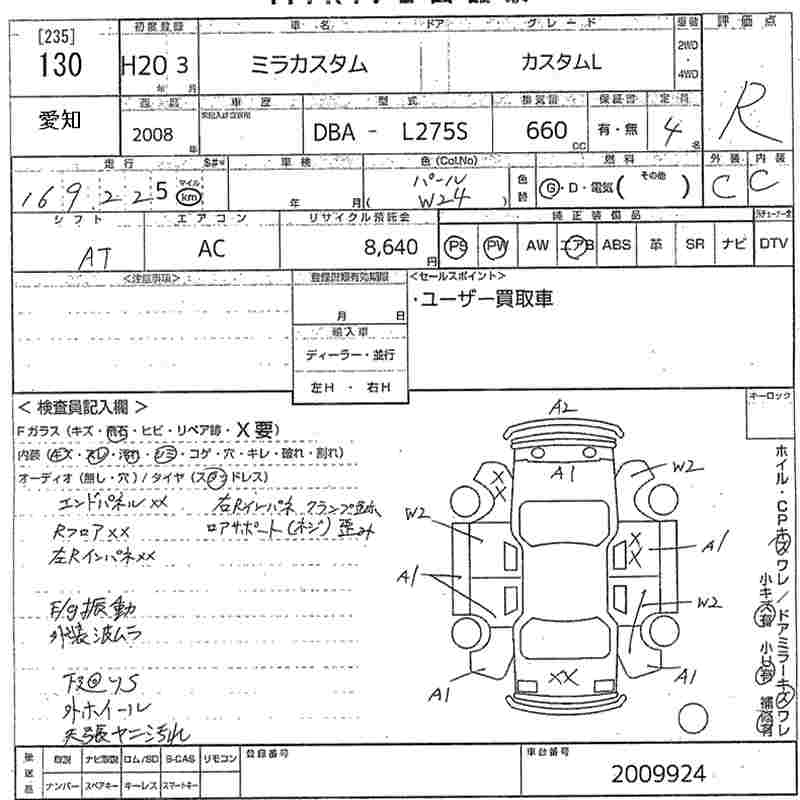 [235]
130
初度登録
車名
ドア
グレード
駆動
評価点
H20 3
年 月
ミラカスタム
カスタムL
2WD
・
4WD
R
愛知
車歴
型式
排気量
保証書
定員
2008
年
DBA - L275S
660
CC
有・無
4
名
走行
車検
色(Col,No)
燃料
外装
内装
169,225
マイル
km
年 月
パール
( W24 )
色替
G・D・電気( その他 )
C
C
シフト
エアコン
リサイクル預託金
純正装備品
AT
AC
8,640
円
PS
PW
AW
エアB
ABS
革
SR
ナビ
DTV
<注意事項>
登録書類有効期限
<セールスポイント>
月 日
・ユーザー買取車
輸入車
ディーラー・並行
左H ・ 右H
キーロック
<検査員記入欄>
Fガラス(キズ・飛石・ヒビ・リペア跡・X要)
内装(キズ・スレ・汚れ・シミ・コゲ・穴・キレ・破れ・割れ)
オーディオ(無し・穴)/タイヤ(スタッドレス)
エンドパネル XX
右Rインパネ クランプ跡
Rフロア XX
ロアサポート(ネジ)歪み
左Rインパネ XX
E/g振動
外装波ムラ
下廻サビ
外ホイール
天張ヤニ汚れ
A2
A1
W2
X
X
W2
X
X
A1
A1
W2
XX
A1
A1
ホイル・CPキズワレ/ドアミラーキズワレ
小キズ有 小U有 補修有
後送品
取説
ナビ取説
ロム/SD
B-CAS
リモコン
登録番号
車台番号
ナンバー
スペアキー
キーレス
スマートキー
2009924